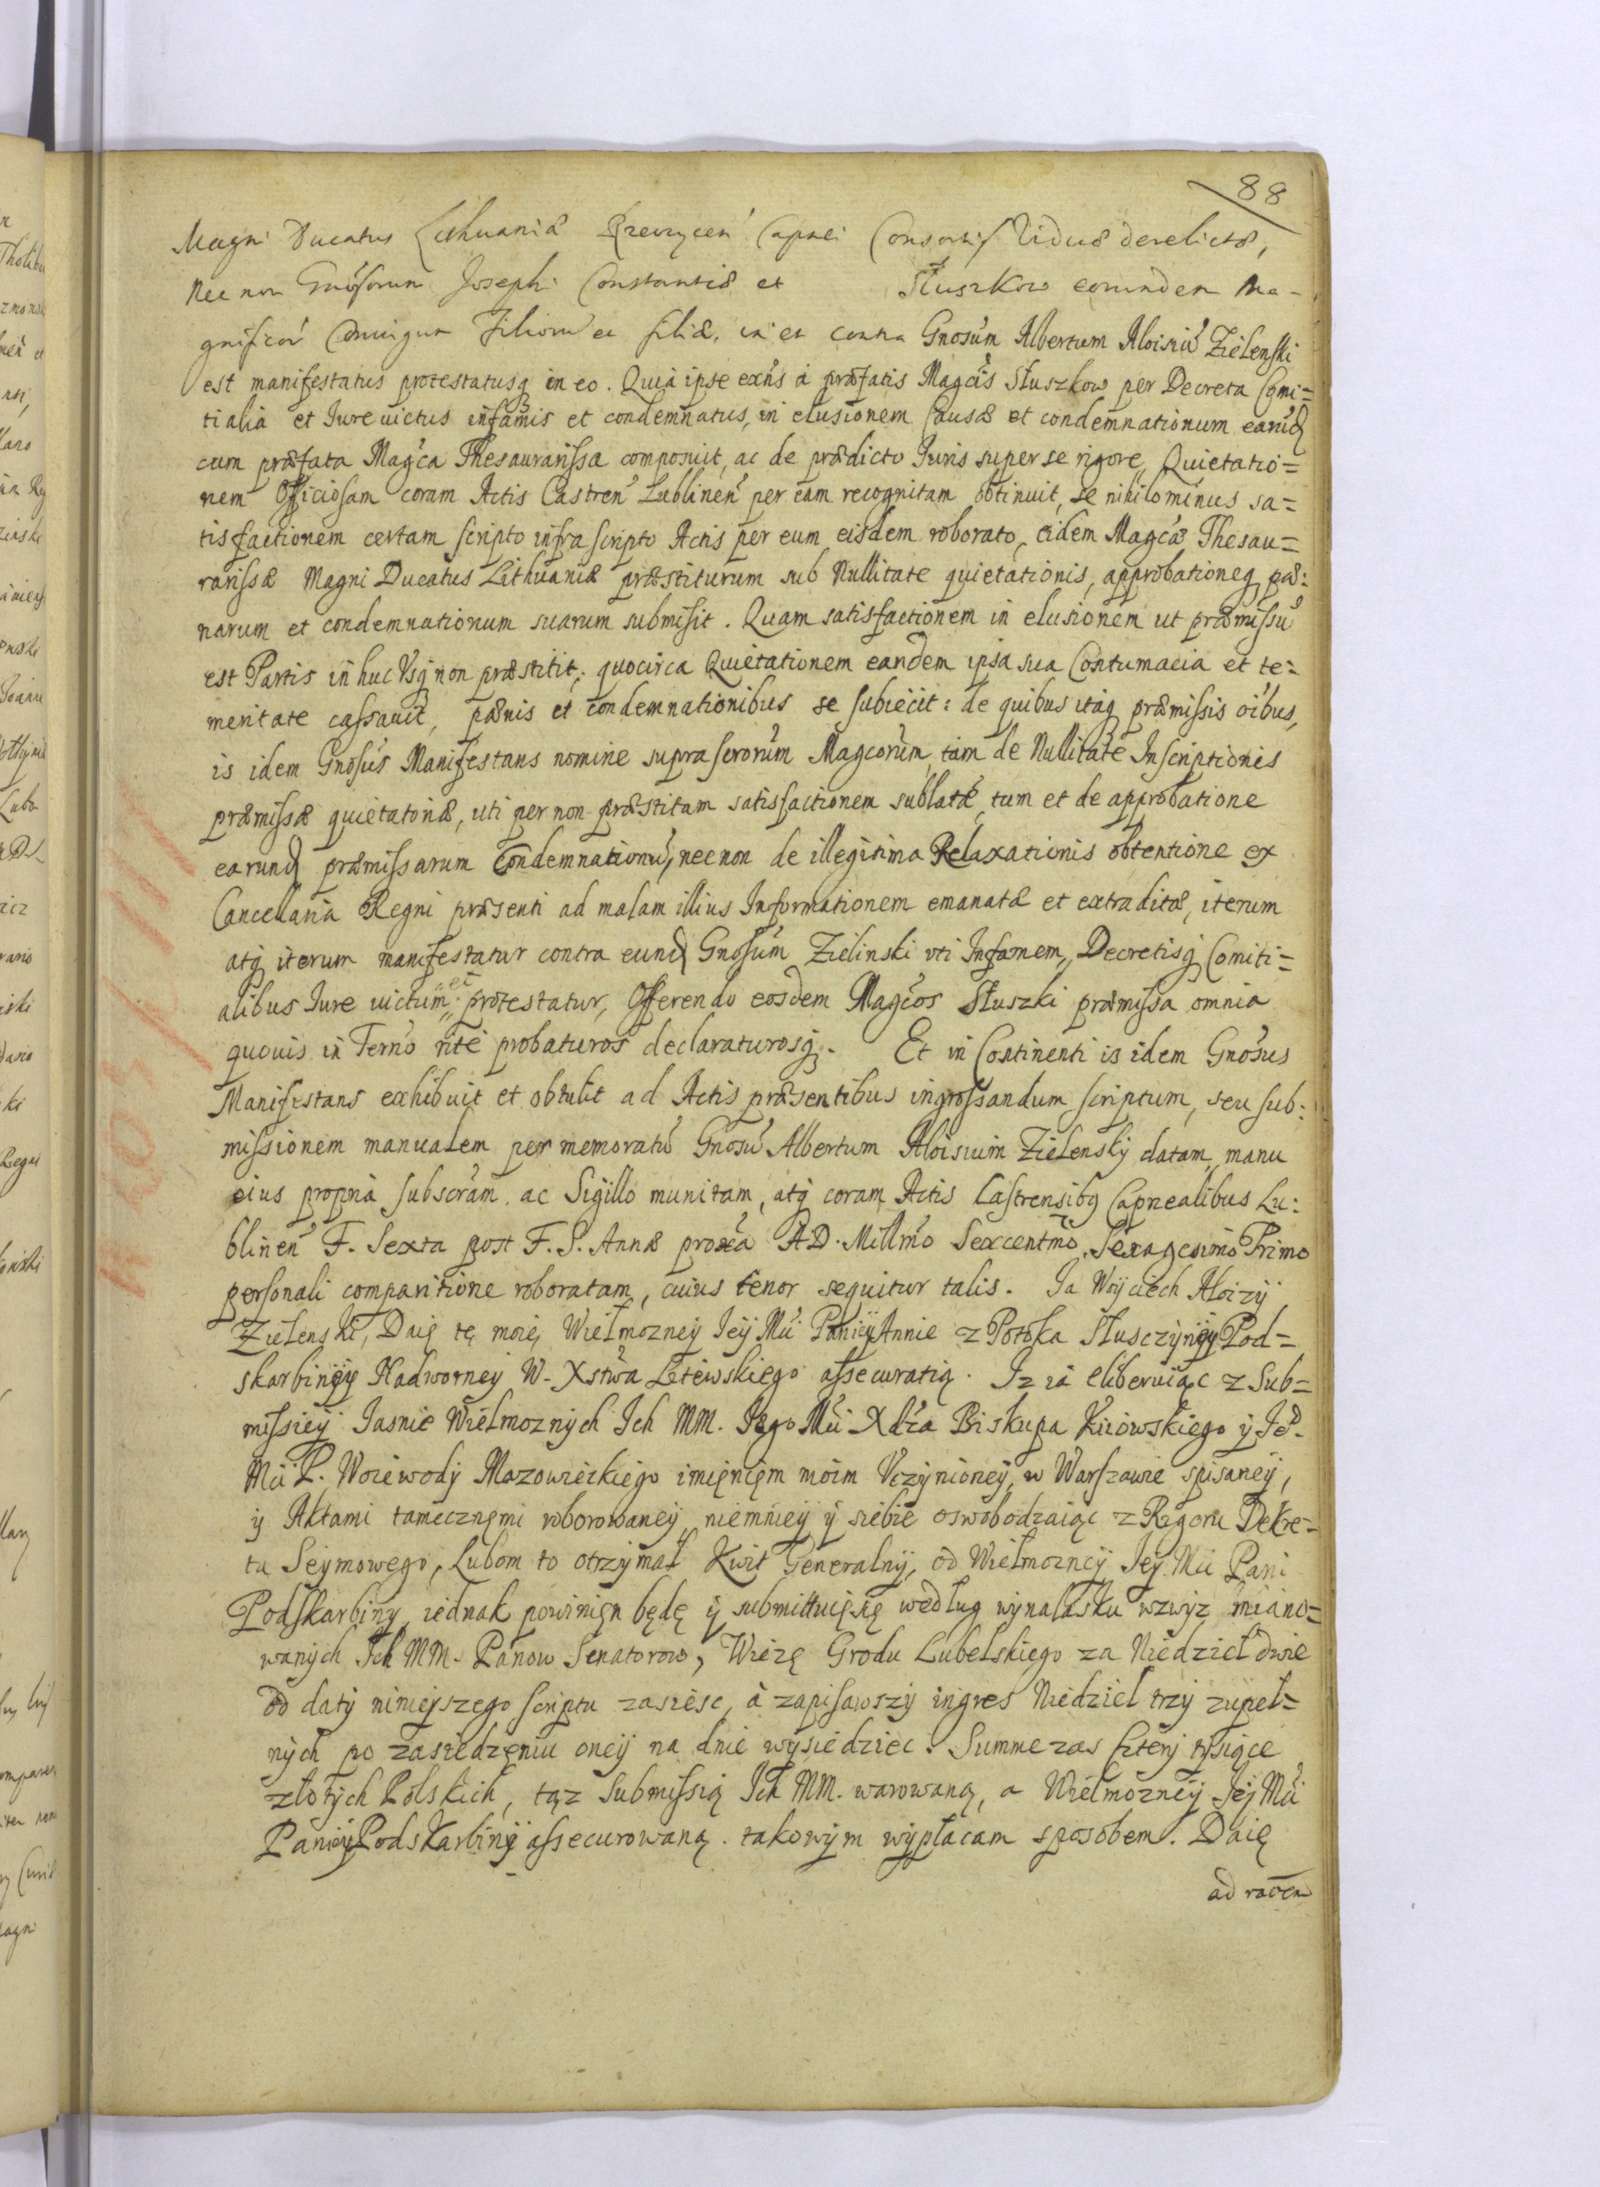 88
Magni Ducatus Lithuaniæ Rzeczycen̄ Capnei Consortis Viduæ derelictæ,
Nec non Gnosorum Josephi Constantiæ et Słuszkow eorundem Ma-
gnificor̄ Coniugum Filioru ei filiæ, in et contra Gnosum Albertum Aloisiū Zielenski
est manifestatus protestatusq in eo. Quia ipse exn̄s a præfatis Magcis Słuszkow per Decreta Comi=
tialia et Jure victus infamis et condemnatus, in elusionem Causæ et condemnationum earūd
cum præfata Magca Thesaurarissa composuit, ac de prædicto Juris super se rigore, Quietatio=
nem Officiosam coram Actis Castren̄ Lublinen̄ per eam recognitam obtinuit, se nihilominus sa=
tisfactionem certam scripto infra scripto Actis per eum eisdem roborato, eidem Magcæ Thesau=
rarissæ Magni Ducatus Lithuaniæ præstiturum sub Nullitate quietationis, approbationeq pæ:
narum et condemnationum suarum submisit. Quam satisfactionem in elusionem ut præmissū
est Partis in huc Vsq non præstitit, quocirca Quietationem eandem ipsa sua Contumacia et te:
meritate cassauit, pænis et condemnationibus se subiecit: de quibus itaq præmissis oībus,
is idem Gnosus Manifestans nomine suprascrorum Magcorum, tam de Nullitate Inscriptionis
præmissæ quietatoriæ, uti per non præstitam satisfactionem sublatæ, tum et de approbatione
earund præmissarum Condemnationū, nec non de illegitima Relaxationis obtentione ex
Cancellaria Regni præsenti ad malam illius Informationem emanatæ et extraditæ, iterum
atq iterum manifestatur contra eund Gnosum Zielinski vti Infamem, Decretisq Comiti=
alibus Iure victum et protestatur, Offerendo eosdem Magcos Słuszki præmissa omnia
quouis in Termo rite probaturos declaraturosq. Et in Continenti is idem Gnosus
Manifestans exhibuit et obtulit ad Actis præsentibus ingrossandum scriptum, seu sub:
missionem manualem per memoratū Gnosū Albertum Aloisium Zielensky datam, manu
eius propria subscram ac Sigillo munitam, atq coram Actis Castrensibq Capnealibus Lu:
blinen̄ F. Sexta post F. S. Annæ proxa A.D. Millmo Sexcentmo Sexagesimo Primo
personali comparitione roboratam, cuius tenor sequitur talis. Ja Woyciech Aloizy
Zielenski, Daię tę moię Wielmozney Jey Mci Paniey Annie z Potoka Słusczyney Pod=
skarbiney Nadworney W. Xstwa Litewskiego assecuratią. Iz ia eliberuiąc z Sub=
missiey Jasnie Wielmoznych Ich MM. Jego Mci Xdza Biskupa Kiiowskiego y Je°
Mci P. Woiewody Mazowieckiego imięnięm moim Vczynioney, w Warszawie spisaney,
y Aktami tamecznęmi roborowaney, niemniey y siebie oswobodzaiąc z Rigoru Dekre=
tu Seymowego, Lubom to otrzymał Kwit Generalny, od Wielmozney Jey Mci Pani
Podskarbiny, iednak powinięn będę y submittuięsię według wynalasku wzwyz miano=
wanych Ich MM. Panow Senatorow, Wiezę Grodu Lubelskiego za Niedziel dwie
od daty ninieyszego scriptu zasiesc, a zapisawszy ingres Niedziel trzy zupeł=
nych po zasiedzęniu oney na dnie wysiedziec. Summe zas Cztery tysiące
złotych Polskich, tąz Submissią Ich MM. warowaną, a Wielmozney Jey Mci
Paniey Podskarbiny assecurowaną. takowym wypłacam sposobem. Daię
ad raōem